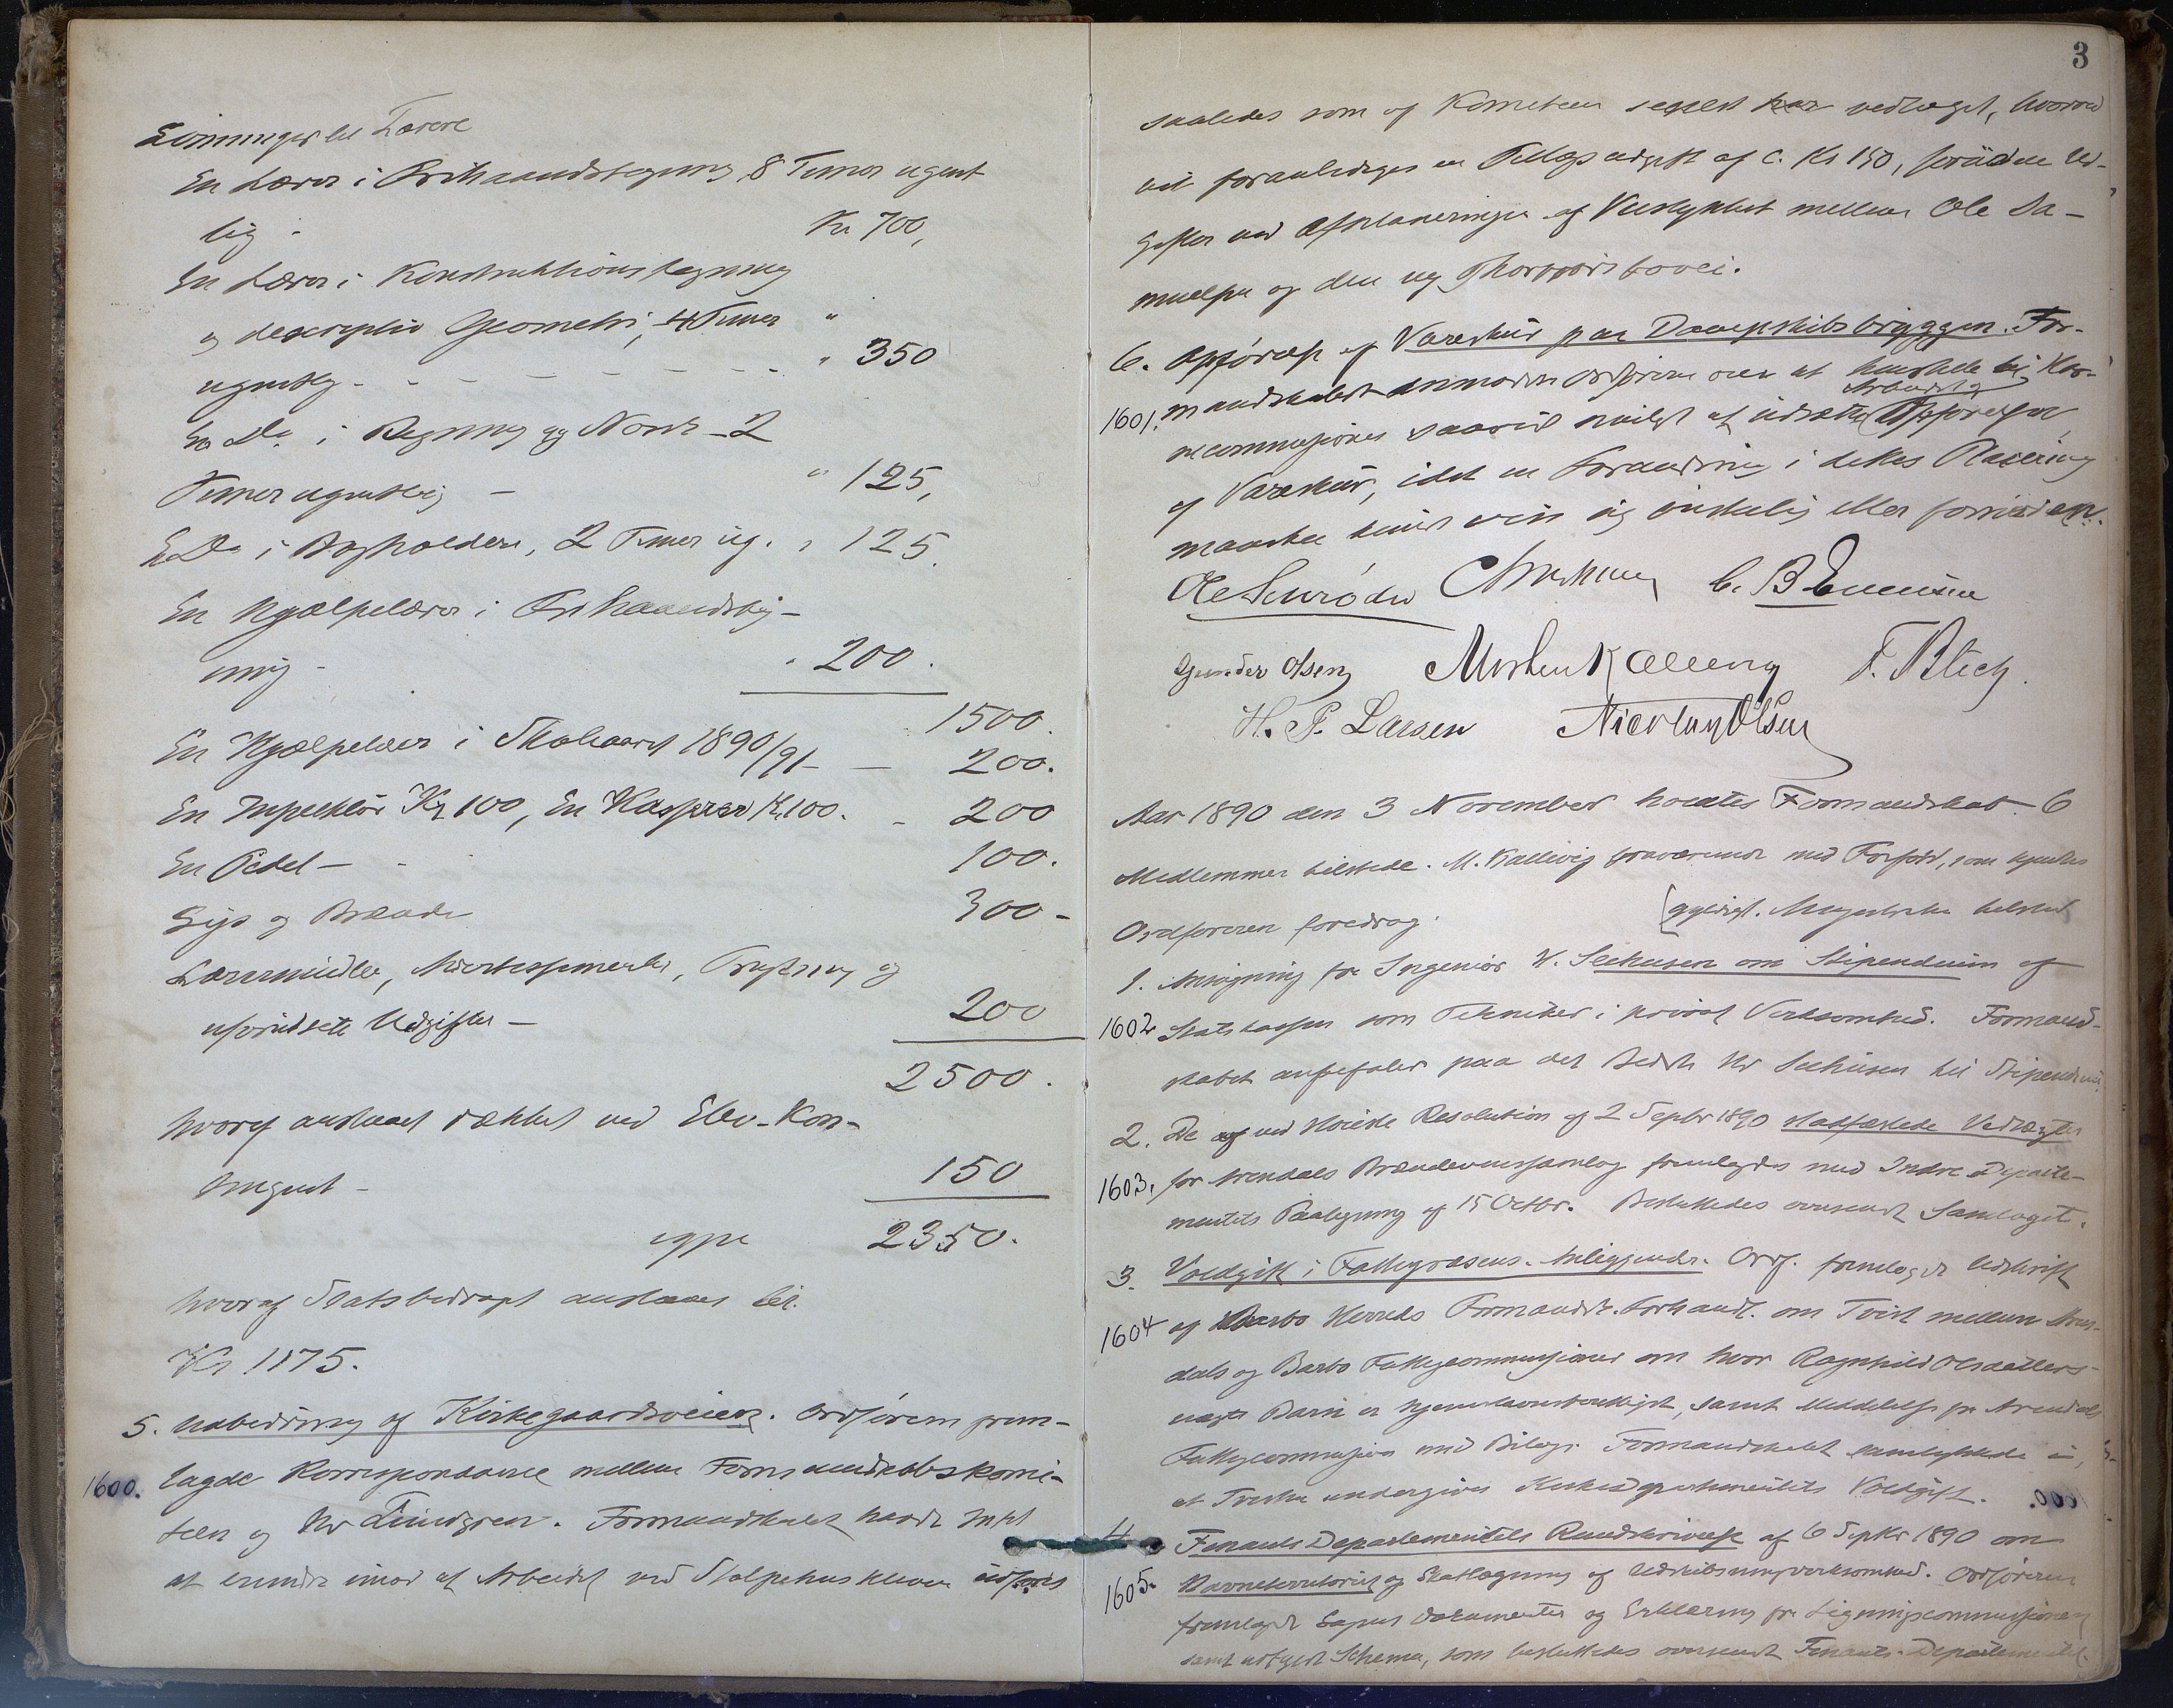 Lønninger til Lærere
En Lærer i Frihaandstegning 8 Timer ugent
lig - Kr 700,
En Lærer i Konstruktionstegning
og descriptiv Geometri, 4 Timer "
ugentlig - - - - - - - - " 350
En Do i Regning og Norsk - 2
Timer ugentlig - " 125,
En Do i Bogholderi, 2 Timer ug. " 125.
En Hjælpelærer i Frihaandsteg-
ning - " 200.
1500.
En Hjælpelærer i Skoleaaret 1890/91 - - 200.
En Inspektør Kr 100, En Kasserer Kr. 100. - 200
En Pedel - - 100.
Lys og Brænde 300 -
Læremidler, Avertissementer, og
uforudsete Udgifter - 200
2500.
hvoraf anslaaet dækket ved Elev-Kon-
tingent - 150
igjen 2350.
hvoraf Statsbidraget anslaaes til
Kr 1175.
5. Udbedring af Kirkegaardsveien. Ordføreren frem-
1600. lagde Korrespondance mellem Formandskabskomi-
teen og Hr Lindgren. Formandskabet havde Intet
at erindre imod at Arbeidet ved udføres
3
saaledes som af Komiteen senest har vedtaget, hvorved
vil foranlediges en Tillægsudgift af c. Kr 150, foruden Ud-
gifter ved Afplaneringen af Veistykket mellem Ole Da-
nielsen og den ny
6. Opførelse af Vareskur paa Dampskibsbryggen. For-
1601. mandskabet anmoder Ordføreren om at henstille til Hav-
Arbeidet
necommissionen saavidt muligt at udsætte Opførelsen
af Vareskur, idet en Forandring i dettes Placering
maaske turde vise sig ønskelig eller fornøden.
Ole Schrøder C. B.
Gunder Olsen Morten Kallevig F. Blich.
H. P. Larsen Nicolay Olsen
Aar 1890 den 3 November holdtes Formandskab. 6
Medlemmer tilstede. M. Kallevig fraværende med Forfald, som kjendtes
Ordføreren foredrog. [gyldigt. Magistraten tilstede
1. Ansøgning fra Ingeniør W. Seehusen om Stipendium af
1602 Statskassen som Tekniker i privat Virksomhed. Formand-
skabet anbefaler paa det bedste Hr Seehusen til Stipendium
2. De ved Høieste Resolution af 2 Septbr 1890 stadfæstede Vedtægter
1603. for Arendals Brændevinssamlag fremlagdes med Indre Departe-
mentets Paategning af 15 Octbr. Besluttedes oversendt Samlaget.
3. Voldgift i Fattigvæsens-Anliggender. Ordf. fremlagde Udskrift
1604 af Barbo Herreds Formandsk. Forhandl. om Tvist mellem Aren-
dals og Barbo Fattigcommissioner om hvor Ragnhild Olsdatters
uægte Barn er hjemstavnsberettiget, samt Meddelelse fra Arendals
Fattigcommission med Bilag. Formandskabet samtykkede i,
at Tvisten undergives Kirkedepartementets Voldgift.
4 Finants Departementets Rundskrivelse af 6 Septbr 1890 om
1605. og Skatlægning af Udskibningsvirksomhed. Ordføreren
fremlagde Sagens Dokumenter og Erklæring fra Ligningscommissionen
samt udfyldt Schema, som besluttedes oversendt Finants-Departementet.